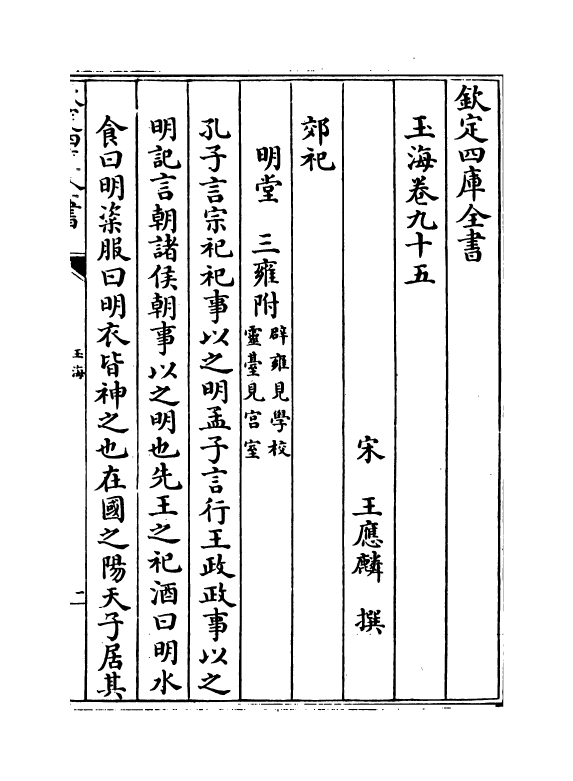 欽定四庫全書
玉海卷九十五
宋　王應麟　撰
郊祀
明堂　三雍附辟雍見學校靈臺見宫室
孔子言宗祀祀事以之明孟子言行王政政事以之
明記言朝諸侯朝事以之明也先王之祀酒曰明水
食曰明粢服曰明衣皆神之也在國之陽天子居其
玉海
二